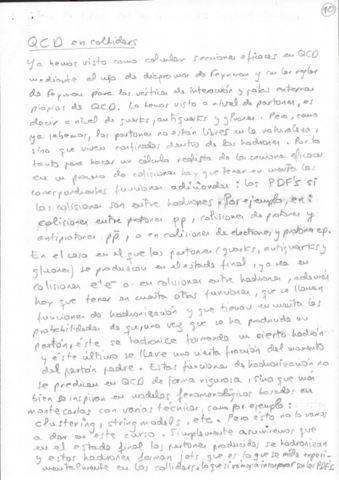 QCD en colliders
Ya hemos visto como calcular secciones eficaces en QCD
mediante el uso de diagramas de Feynman y con las reglas
de Feynman para los vértices de interacción y patas externas
propias de QCD. Lo hemos visto a nivel de partones, es
decir a nivel de quarks, antiquarks y gluones. Pero, como
ya sabemos, los partones no están libres en la naturaleza,
sino que viven confinados dentro de los hadrones. Por lo
tanto para hacer un cálculo realista de la sección eficaz
en un proceso de colisiones hay que tener en cuenta las
correspondientes funciones adicionales: las PDF's si
las colisiones son entre hadrones. Por ejemplo, en:
colisiones entre protones pp, colisiones de protones y
antiprotones pp̄, o en colisiones de electrones y protones ep.
En el caso en el que los partones (quarks, antiquarks y
gluones) se produzcan en el estado final, ya sea en
colisiones e⁺e⁻ o en colisiones entre hadrones, además
hay que tener en cuenta otras funciones, que se llaman
funciones de hadronización y que tienen en cuenta las
probabilidades de que, una vez que se ha producido un
partón, éste se hadronice formando un cierto hadrón
y éste último se lleve una cierta fracción del momento
del partón padre. Estas funciones de hadronización no
se predicen en QCD de forma rigurosa, sino que más
bien se inspiran en modelos fenomenológicos basados en
montecarlos con varias técnicas, como por ejemplo:
clustering, string models, etc. Pero ésto no lo vamos
a dar en este curso. Simplemente asumiremos que
en el estado final los partones producidos se hadronizan
y estos hadrones forman jets, que es lo que se mide experi-
mentalmente en los colliders, lo que sí en los PDF's